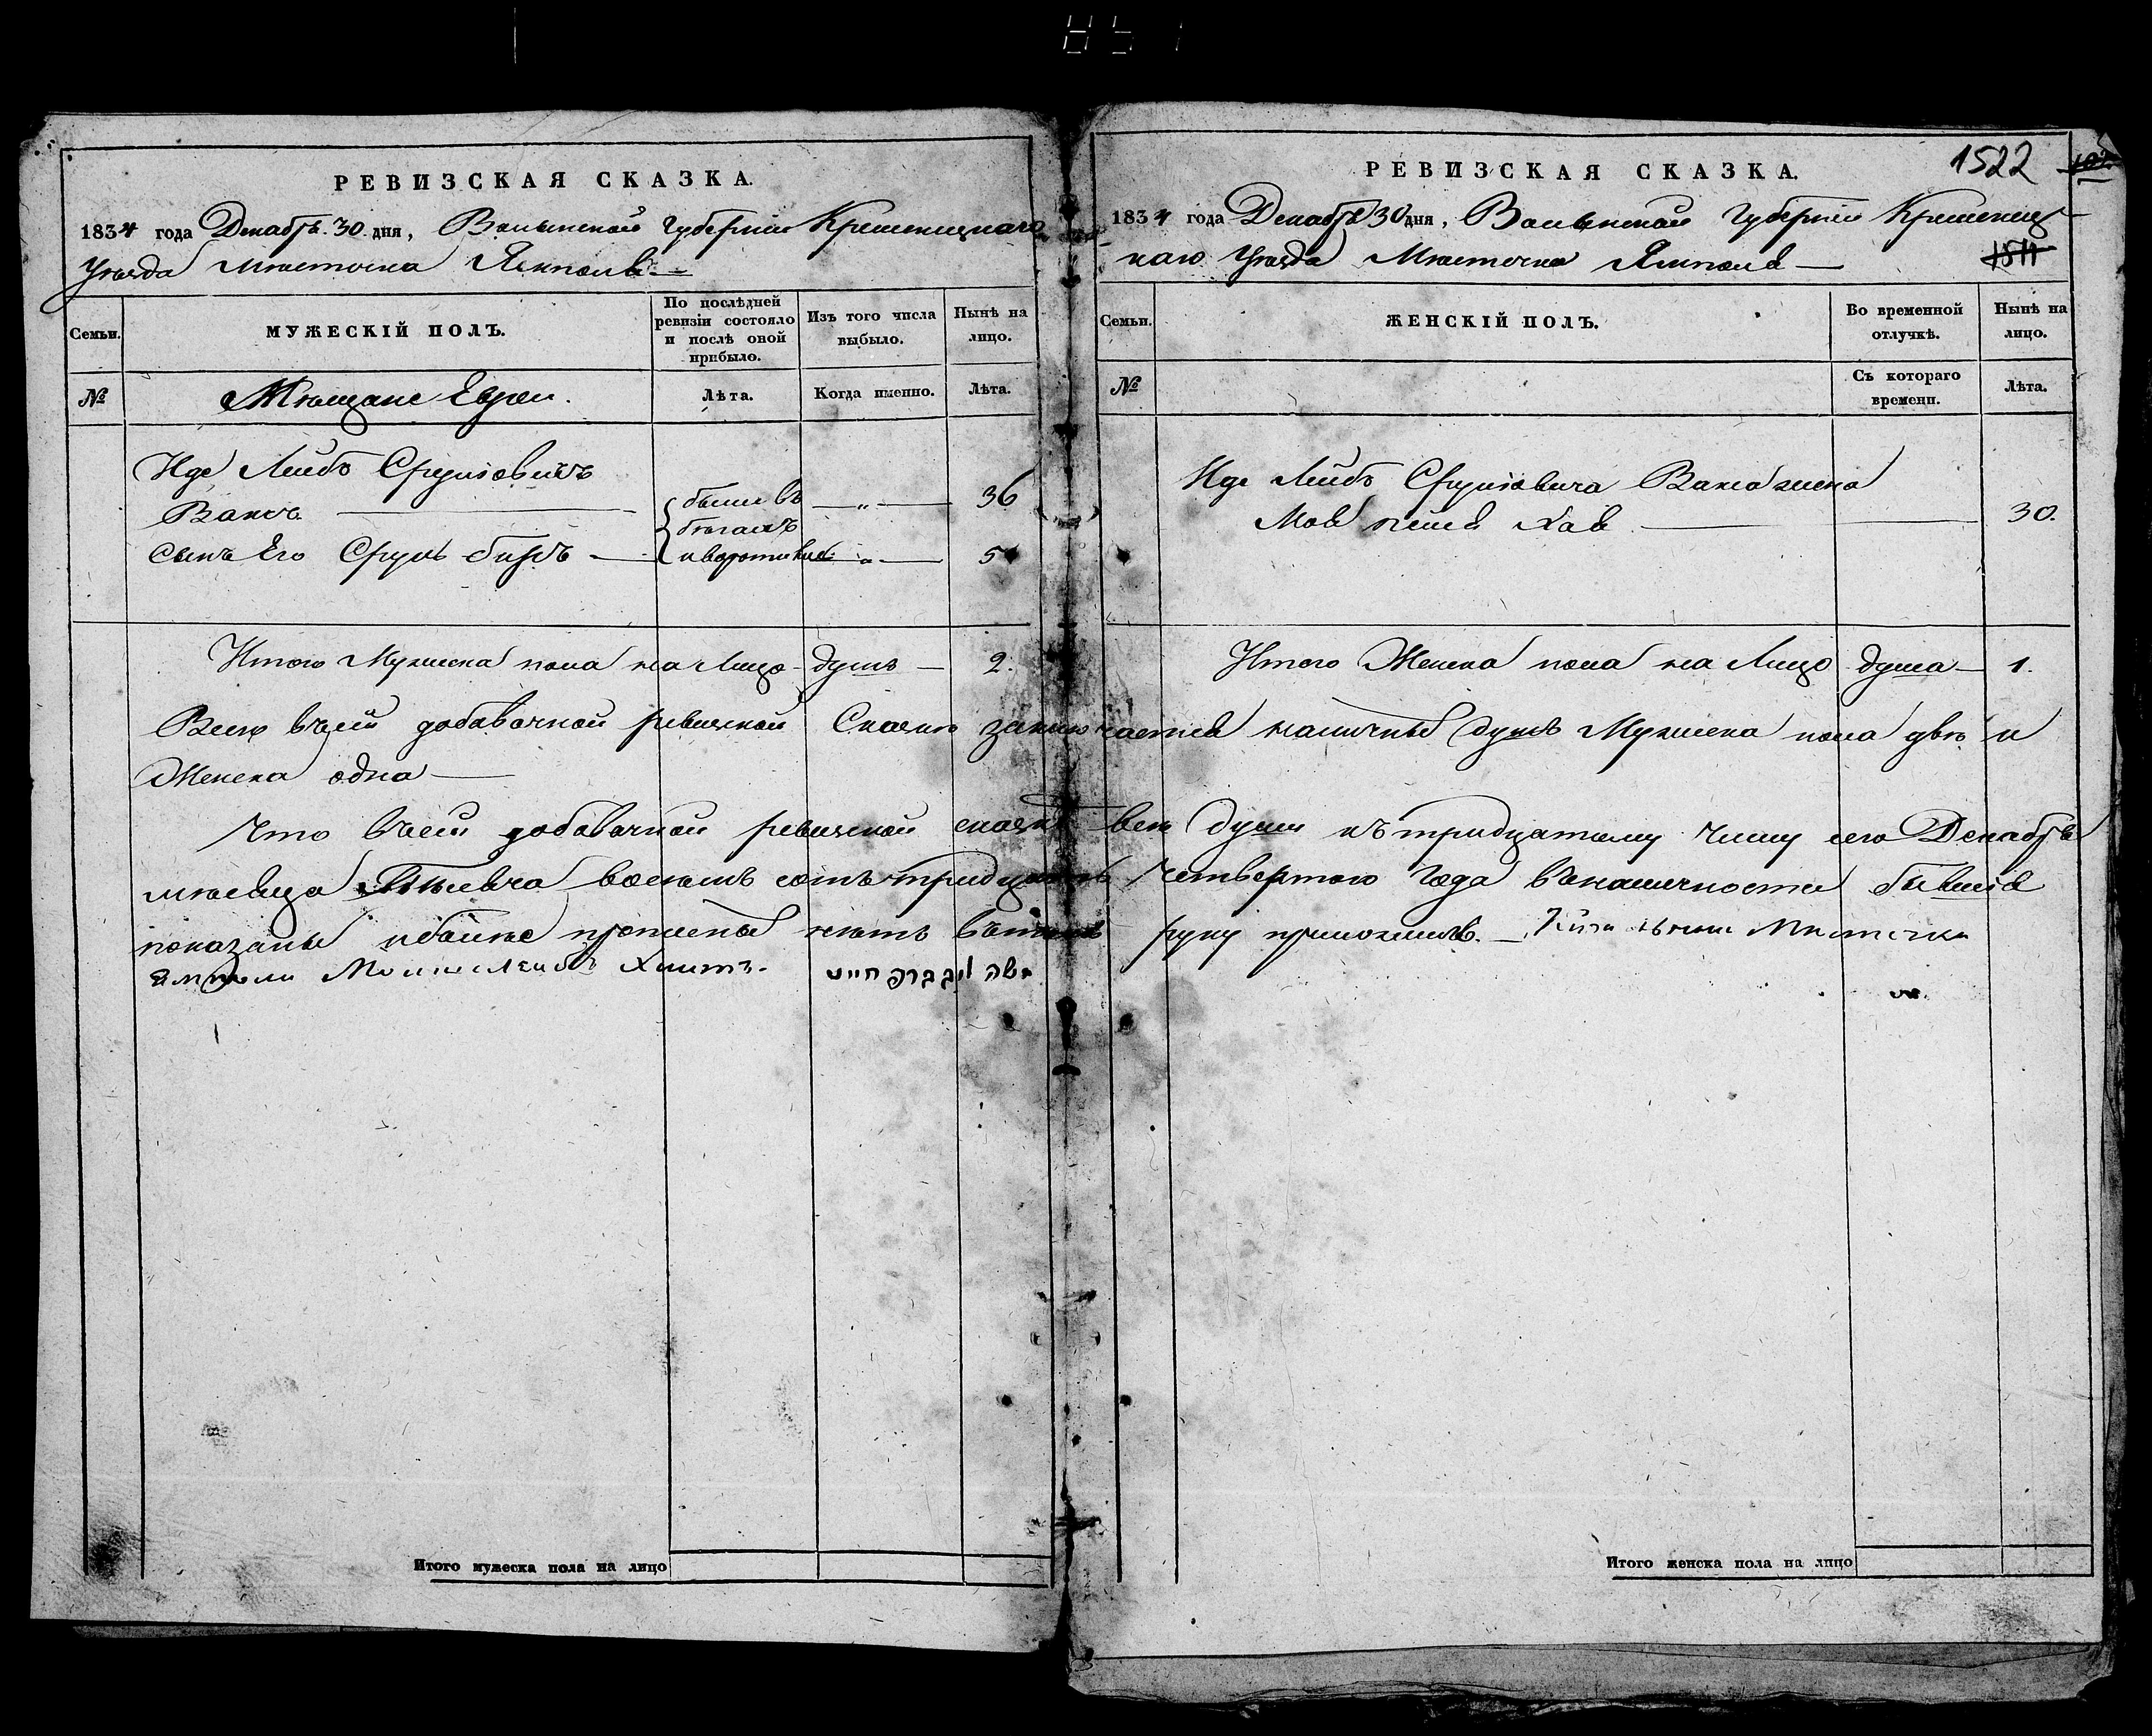 РЕВИЗСКАЯ СКАЗКА.
1834 года Декабря 30 дня, Волынской Губернiи Кременецкаго
Уѣзда Мѣстечка Ямполя
Семьи.
МУЖЕСКIЙ ПОЛЪ.
По послѣдней ревизiи состояло и послѣ оной прибыло.
Изъ того числа выбыло.
Нынѣ на лицо.
№
Мѣщане Евреи.
Лѣта.
Когда именно.
Лѣта.
Лейб Сруліовичъ
Ваксъ
бывшiе въ бѣгахъ
36
Сынъ Его Сруль
5
Итого Мужеска пола на Лицо душъ 2.
РЕВИЗСКАЯ СКАЗКА.
1522
1834 года Декабря 30 дня, Волынской Губернiи Кременец
каго Уѣзда Мѣстечка Ямполя
1511
Семьи.
ЖЕНСКIЙ ПОЛЪ.
Во временной отлучкѣ.
Нынѣ на лицо.
№
Съ котораго времени.
Лѣта.
Лейб Сруліовича Вакса жена
Хая
30.
Итого Женска пола на Лицо душа 1.
Всего въ сей добавочной ревизской Сказкѣ заключается наличныхъ душъ Мужеска пола двѣ и
Женска одна
Что въ сей добавочной ревизской сказкѣ все души къ тридцатому числу сего Декабря
мѣсяца восемъ сотъ тридцать четвертого года въ наличности бывшiя
показаны руку приложилъ. Мѣстечка
Ямполи
Итого мужеска пола на лицо
Итого женска пола на лицо